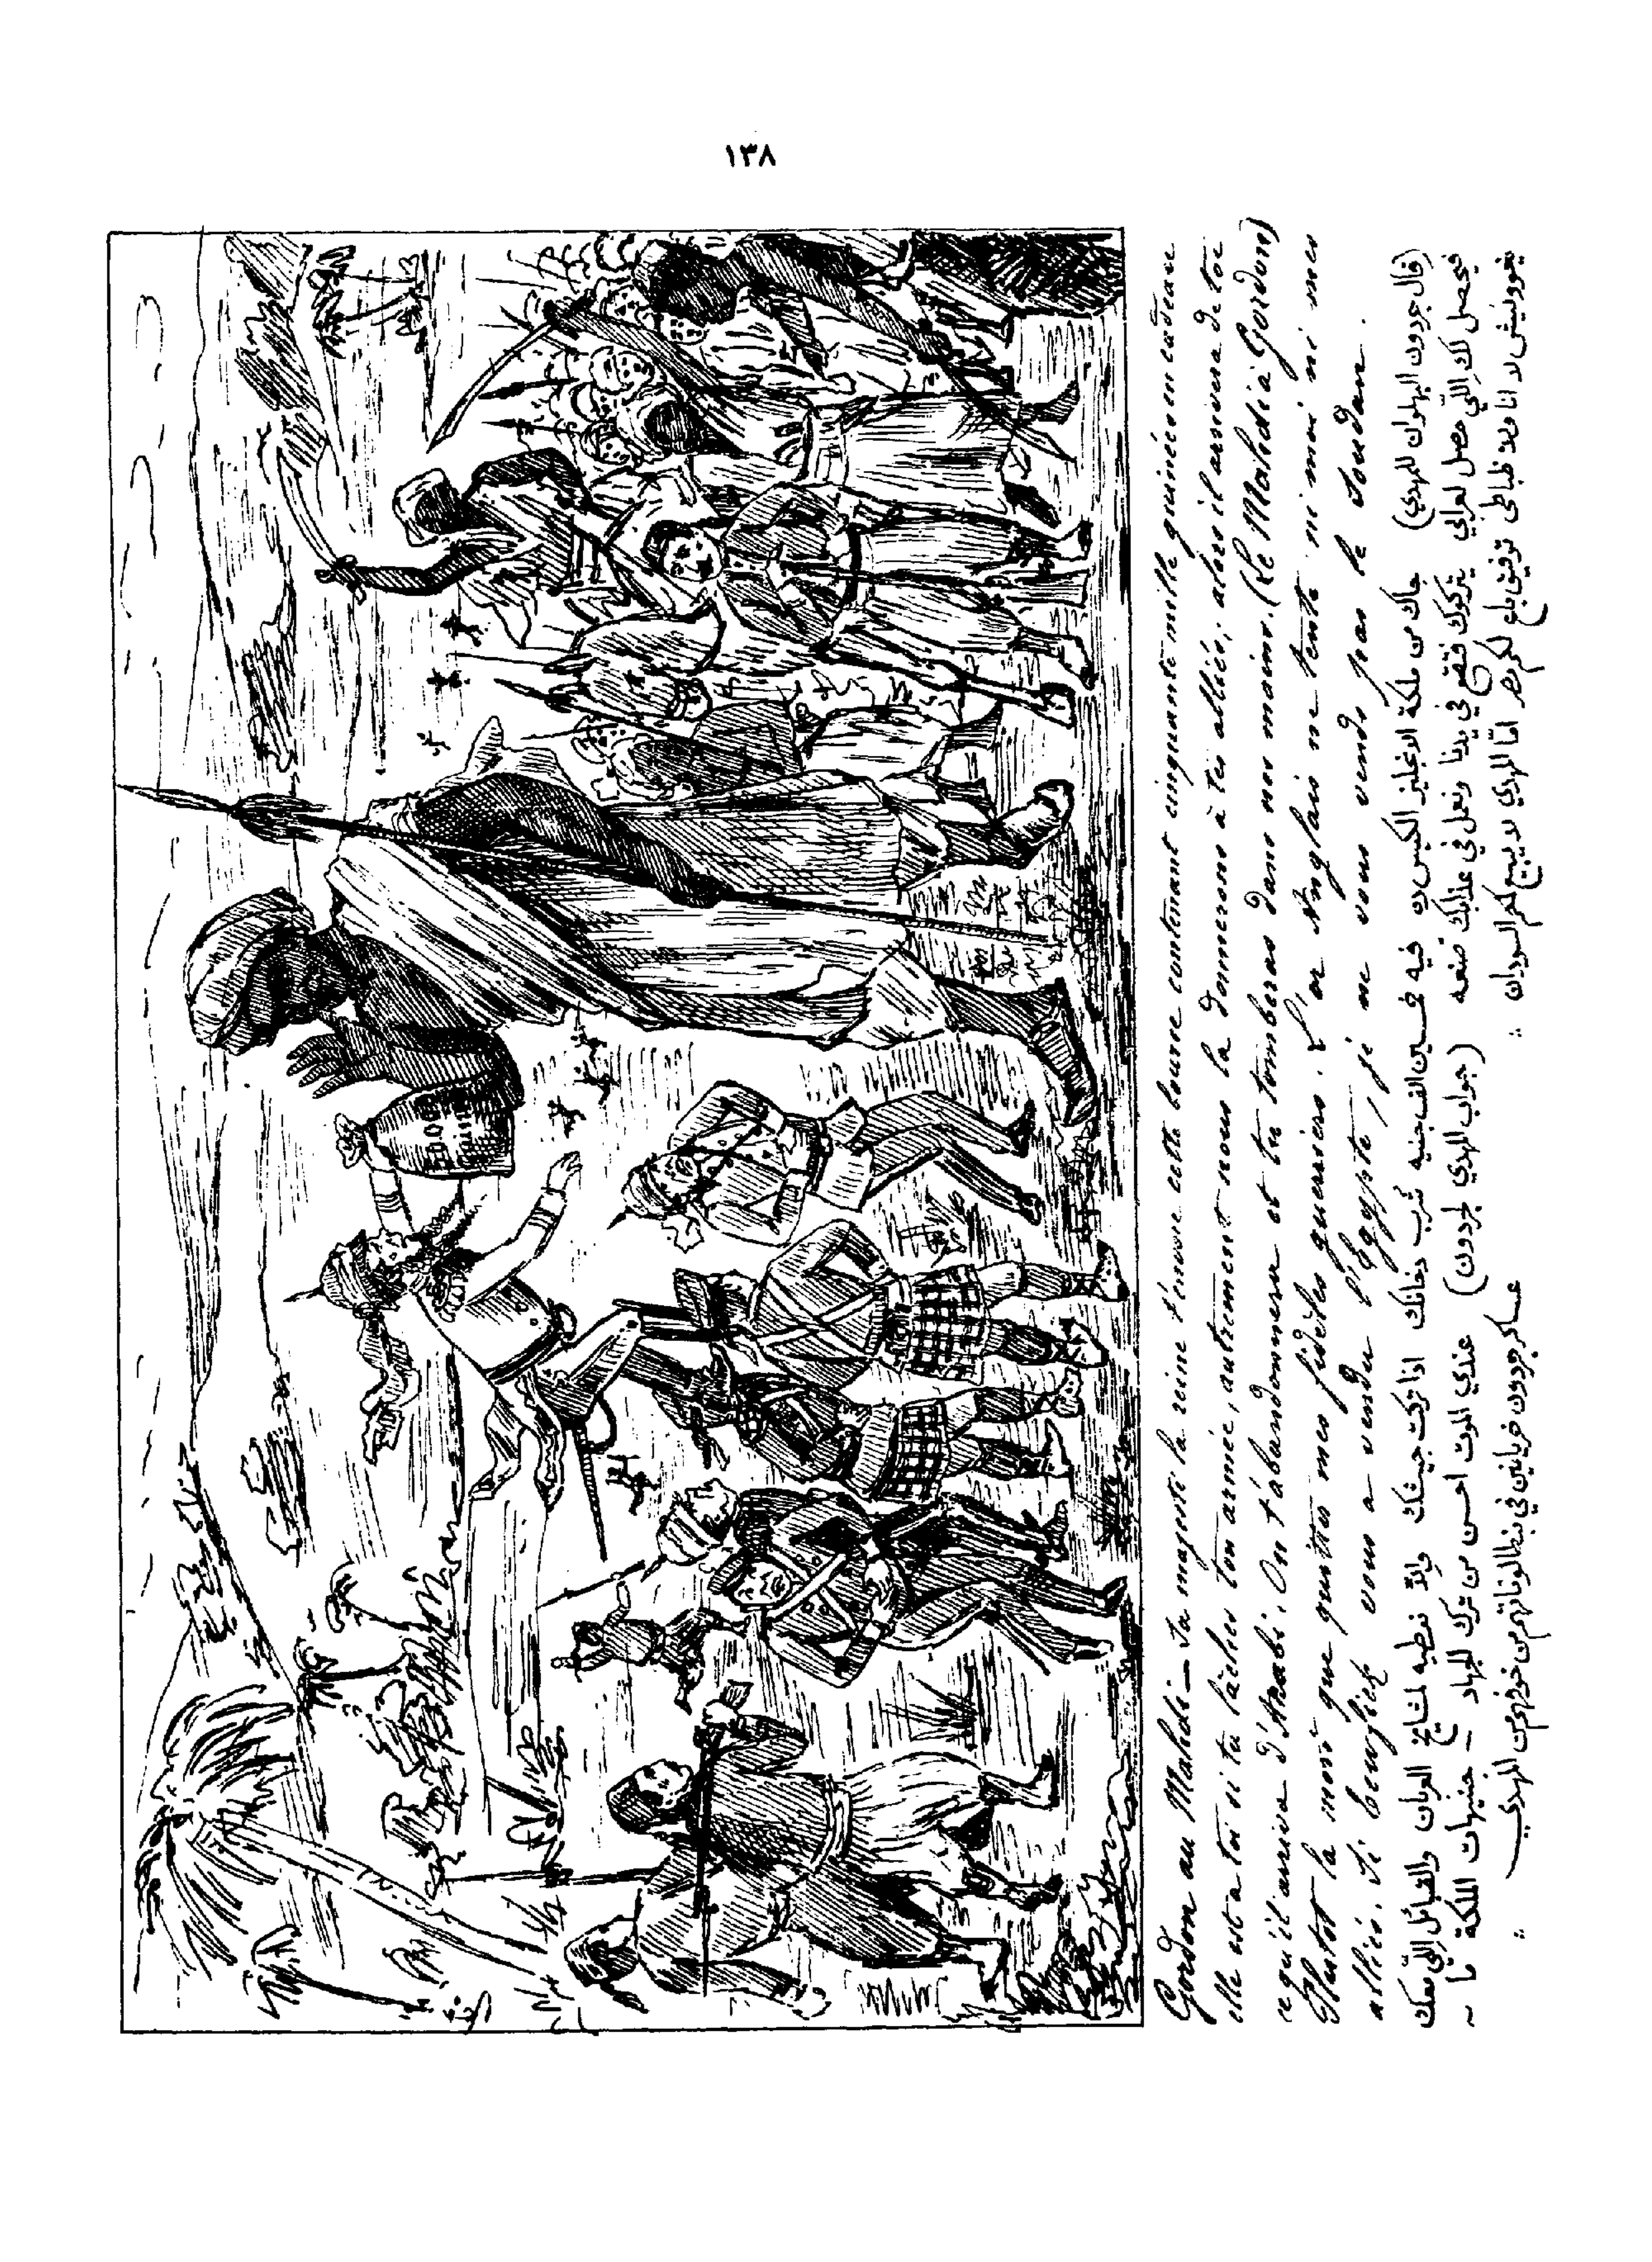 ١٣٨
50,000
Guinées
Gordon au Mahdi — Sa majesté la reine t'envoie cette bourse contenant cinquante mille guinées en cadeau
elle est a toi si tu lâches ton armée, autrement nous la donnerons à tes alliés, alors il arrivera de toi
ce qu'il arriva d'Arabi. On t'abandonnera et tu tomberas dans nos mains. (Le Mahdi à Gordon)
Plutot la mort que quitter mes fidèles guerriers. L'or Anglais ne tente ni moi ni mes
alliés. Si Tewfick vous a vendu l'Egypte, je ne vous vends pas le Soudan.
(قال جردون البهلوان للمهدي) جاك من ملكة الانجليز الكيس ده فيه خمسين الف جنيه شرب دخانك اذا تركت جيشك والا نعطيه لمشايخ العربان والقبائل اللي معك
فيحصل لك اللي حصل لعرابي يتركوك فتقع في يدنا ونعمل في عذابك صنعه (جواب المهدي لجردون) عندي الموت احسن من ترك الجهاد - جنيهات الملكة ما
يغوونيش لا انا ولا ظباطي توفيق باع لكم مصر اما المهدي لا يبيع لكم السودان ∴ عساكر جردون خريانين في بنطالوناتهم من خوفهم من المهدي ∴